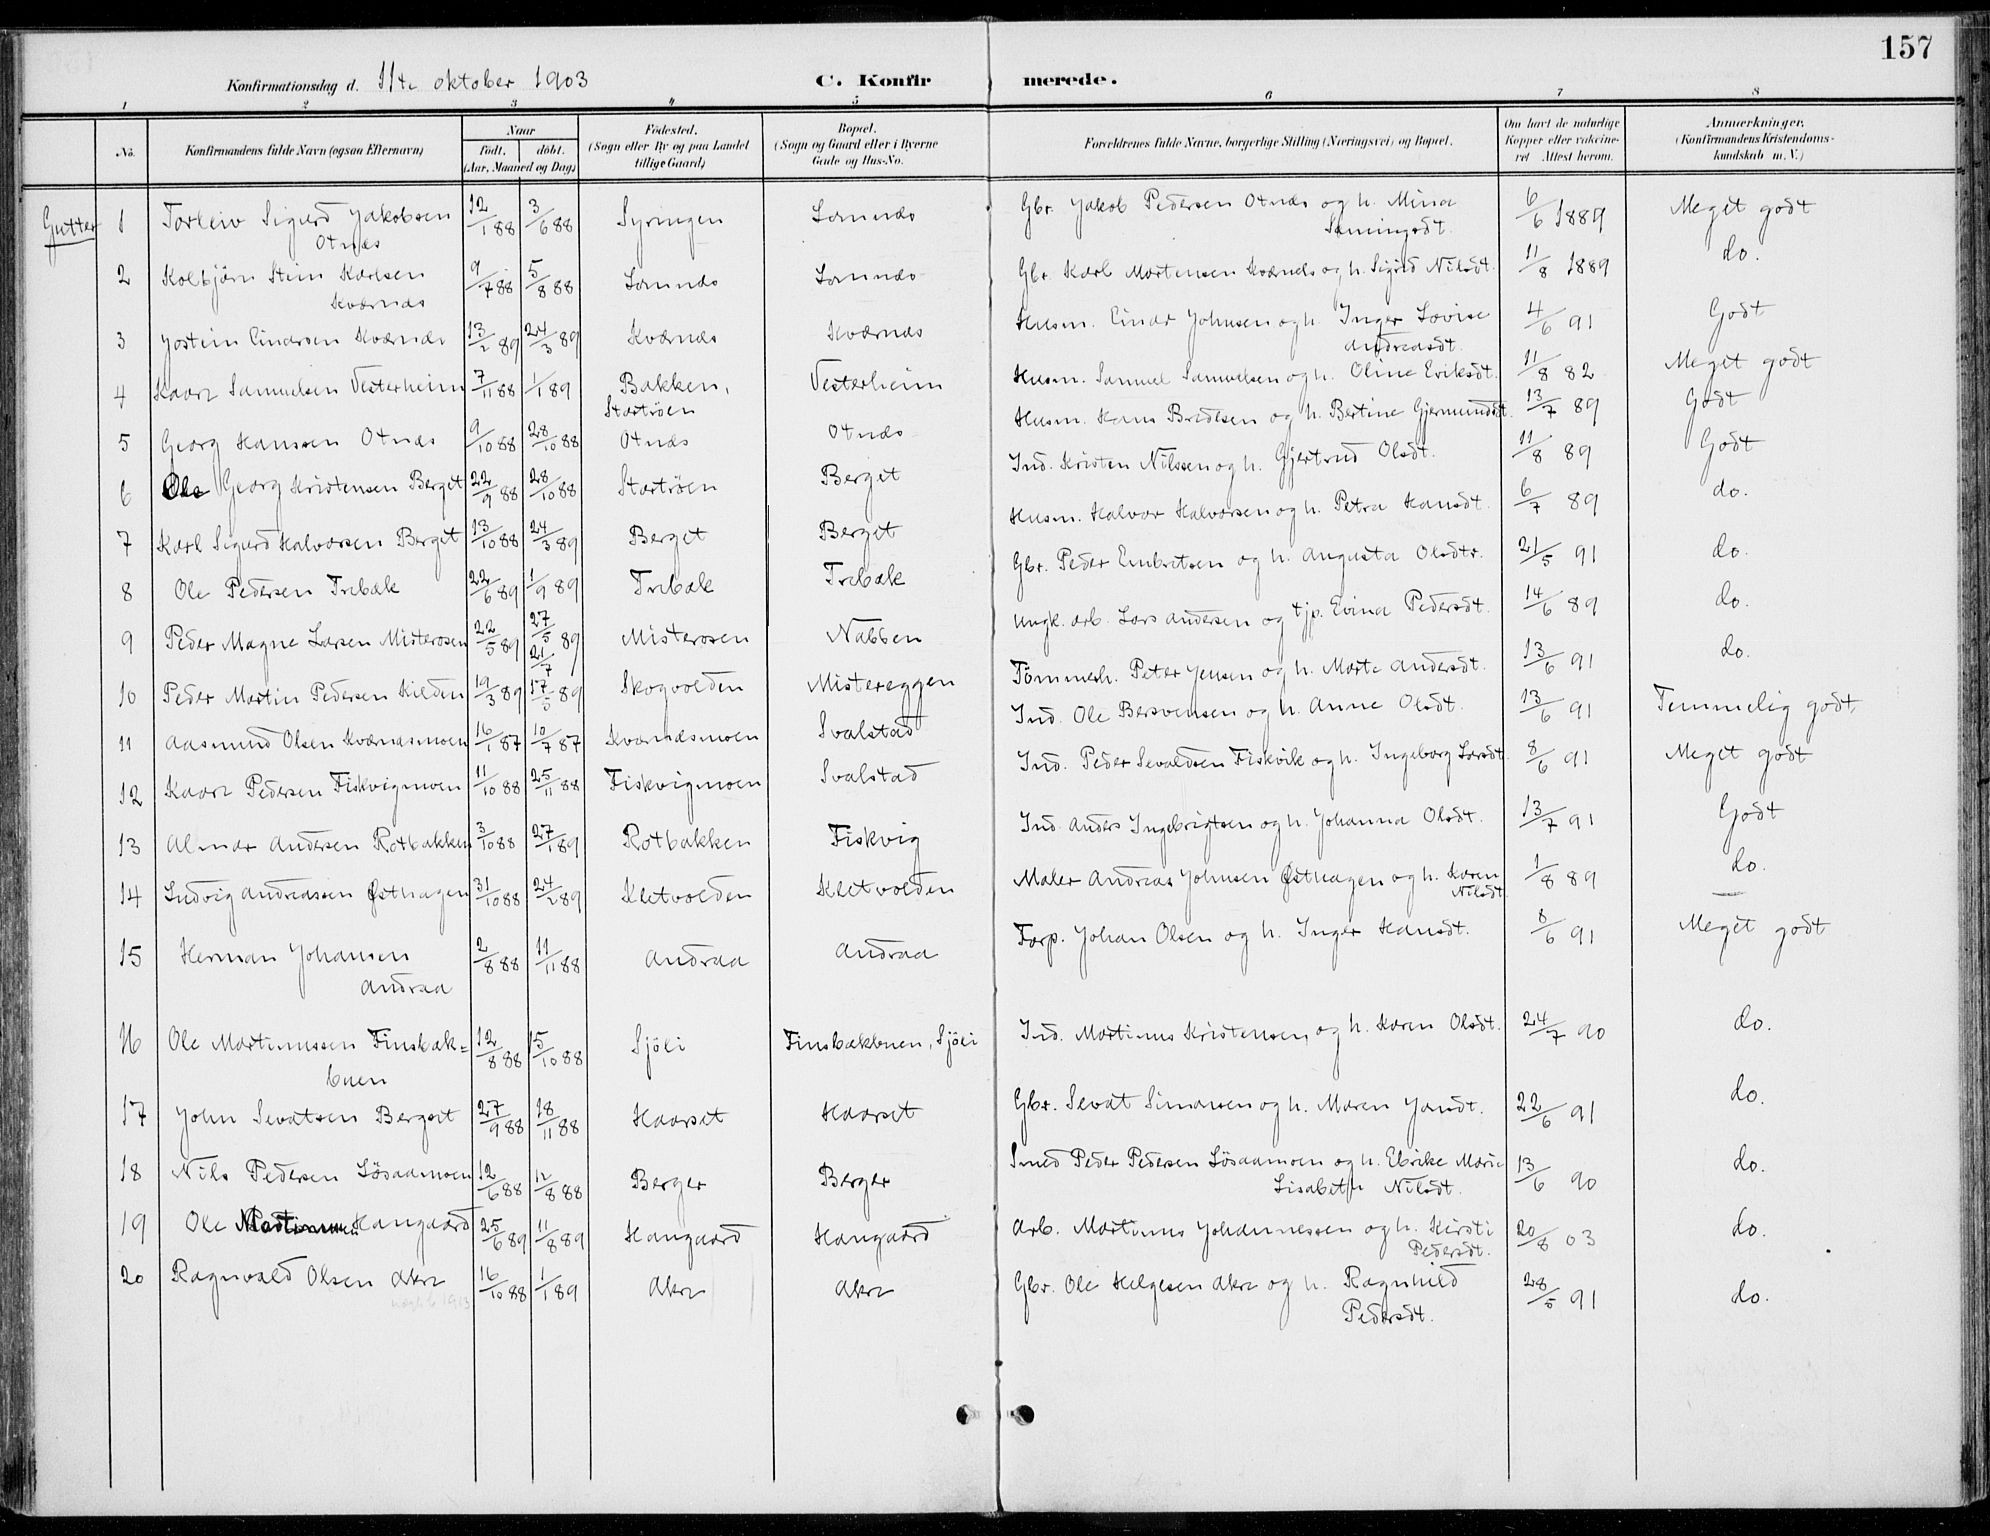 157
Konfirmationsdag d. 11te oktober 1903 C. Konfir merede.
1 2 3 4 5 6 7 8
No. Konfirmandens fulde Navn (ogsaa Efternavn) Naar født. døbt. (Aar, Maaned og Dag) Fødested. (Sogn eller By og paa Landet tillige Gaard) Bopæl. (Sogn og Gaard eller i Byerne Gade og Hus-No. Forældrenes fulde Navne, borgerlige Stilling (Næringsvei) og Bopæl. Om havt de naturlige Kopper eller vaccineret Attest herom. Anmærkninger. (Konfirmandens Kristendomskundskab m. V.)
Gutter 1 Torleiv Sigurd Jakobsen Otnæs 12/1 88 3/6 88 Syringen Lomnæs Gbr. Jakob Pedersen Otnæs og h. Mina 6/6 1889 Meget godt
2 Kolbjörn Stein Karlsen Kværnæs 9/7 88 5/8 88 Lomnæs Lomnæs Gbr. Karl Mortensen Kværnæs og h. Sigrid Nilsdt. 11/8 1889 do.
3 Jostein Einarsen Kværnæs 13/2 89 24/3 89 Kværnæs Kværnæs Husm. Einar Johnsen og h. Inger Lovise Andreasdt. 4/6 91 Godt
4 Kaare Samuelsen Vesterheim 7/11 88 1/1 89 Bakken, Stortröen Vesterheim Husm. Samuel Samuelsen og h. Oline Eriksdt. 11/8 82 Meget godt
5 Georg Hanssen Otnæs 9/10 88 28/10 88 Otnæs Otnæs Husm. Hans Bredesen og h. Bertine Gjermundsdt. 13/7 89 Godt
6 Ole Georg Kristensen Berget 22/9 88 28/10 88 Stortröen Berget Ind. Kristen Nilssen og h. Gjertrud Olsdt. 11/8 89 Godt
7 Karl Sigurd Halvorsen Berget 13/10 88 24/3 89 Berget Berget Husm. Halvor Halvorsen og h. Petra Hansdt. 6/7 89 do.
8 Ole Pedersen Trebæk 22/6 89 1/9 89 Trebæk Trebæk Gbr. Peder Embretsen og h. Augusta Olsdtr. 21/5 91 do.
9 Peder Magne Larsen Misterosen 22/5 89 27/5 21/7 89 Misterosen Nabben Ungk. arb. Lars Andersen og tjp. Evina Pedersdt. 14/6 89 do.
10 Peder Martin Pedersen Kilden 19/3 89 17/5 89 Skogvolden Mistereggen Tömmerh. Peter Jensen og h. Marte Andersdt. 13/6 91 do.
11 Aasmund Olsen Kværnæsmoen 16/1 87 10/7 87 Kværnæsmoen Svalstad Ind. Ole Bersvensen og h. Anne Olsdt. 13/6 91 Temmelig godt.
12 Kaare Pedersen Fiskvigmoen 11/10 88 25/11 88 Fiskvigmoen Svalstad Ind. Peder Sevaldsen Fiskvik og h. Ingeborg Larsdt. 8/6 91 Meget godt
13 Almar Andersen Rotbakken 3/10 88 27/1 89 Rotbakken Fiskvig Ind. Anders Ingebrigtsen og h. Johanna Olsdt. 13/7 91 Godt
14 Ludvig Andreassen Østhagen 31/10 88 24/2 89 Kletvolden Kletvolden Maler Andreas Johnsen Østhagen og h. Karen Nilsdt. 1/8 89 do.
15 Herman Johansen Andraa 2/8 88 11/11 88 Andraa Andraa Forp. Johan Olsen og h. Inger Hansdt. 8/6 91 Meget godt
16 Ole Martinussen Finsbæk= buen 12/8 88 15/10 88 Sjöli Finsbækbuen, Sjöli Ind. Martinus Kristensen og h. Karen Olsdt. 24/7 90 do.
17 John Sevatsen Bergset 27/9 88 18/11 88 Haarset Haarset Gbr. Sevat Simonsen og h. Maren Jonsdt. 22/6 91 do.
18 Nils Pedersen Lösaamoen 12/6 88 12/8 88 Berger Berger Smed Peder Pedersen Lösaamoen og h. Elvrike Marie Lisabeth Nilsdt. 13/6 90 do.
19 Ole Haugaard 25/6 89 11/8 89 Haugaard Haugaard Arb. Martinus Johannessen og h. Kirsti Pedersdt. 20/8 03 do.
20 Ragnvald Olsen Akre 16/10 88 1/1 89 Akre Akre Gbr. Ole Helgesen Akre og h. Ragnhild Pedersdt. 28/5 91 do.